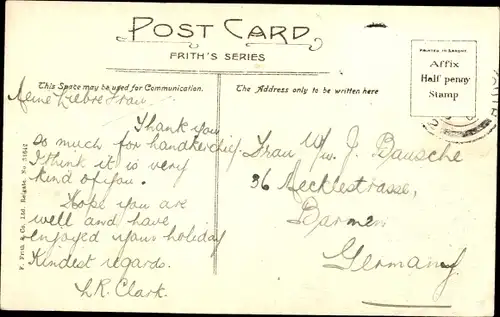 POST CARD
FRITH'S SERIES
This Space may be used for Communication.
The Address only to be written here
PRINTED IN SAXONY
Affix
Half penny
Stamp
Meine Liebre Frau.
Thank you
so much for handkerchief.
I think it is very
kind of you.
Hope you are
well and have
enjoyed your holiday
Kindest regards.
L.R. Clark.
Frau Ww. J. Bausche
36 Mecklestrasse,
Barmen
Germany
F. Frith & Co. Ltd. Reigate. No.